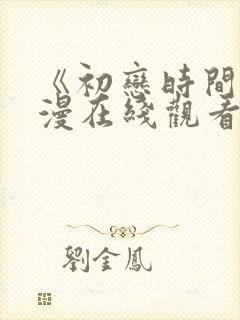 《初戀時間
漫在綫觀看
劉金鳳